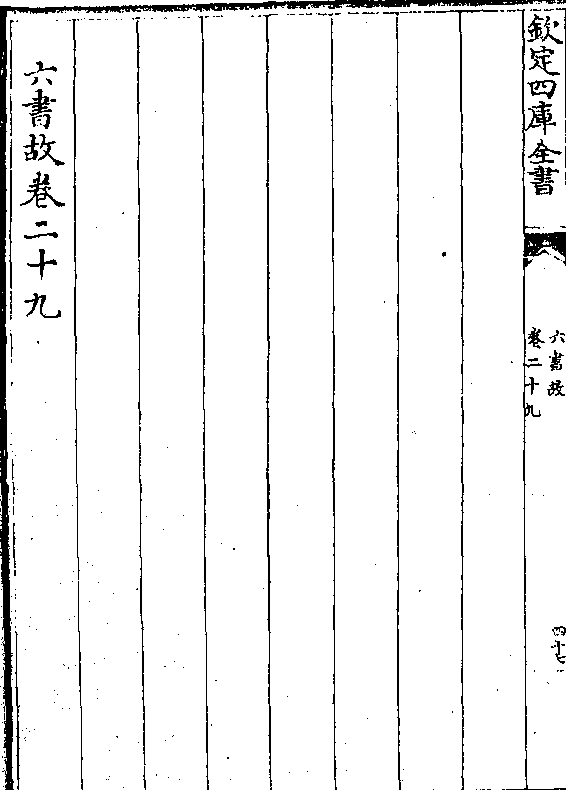 欽定四庫全書
六書故
卷二十九
四十七
六書故卷二十九